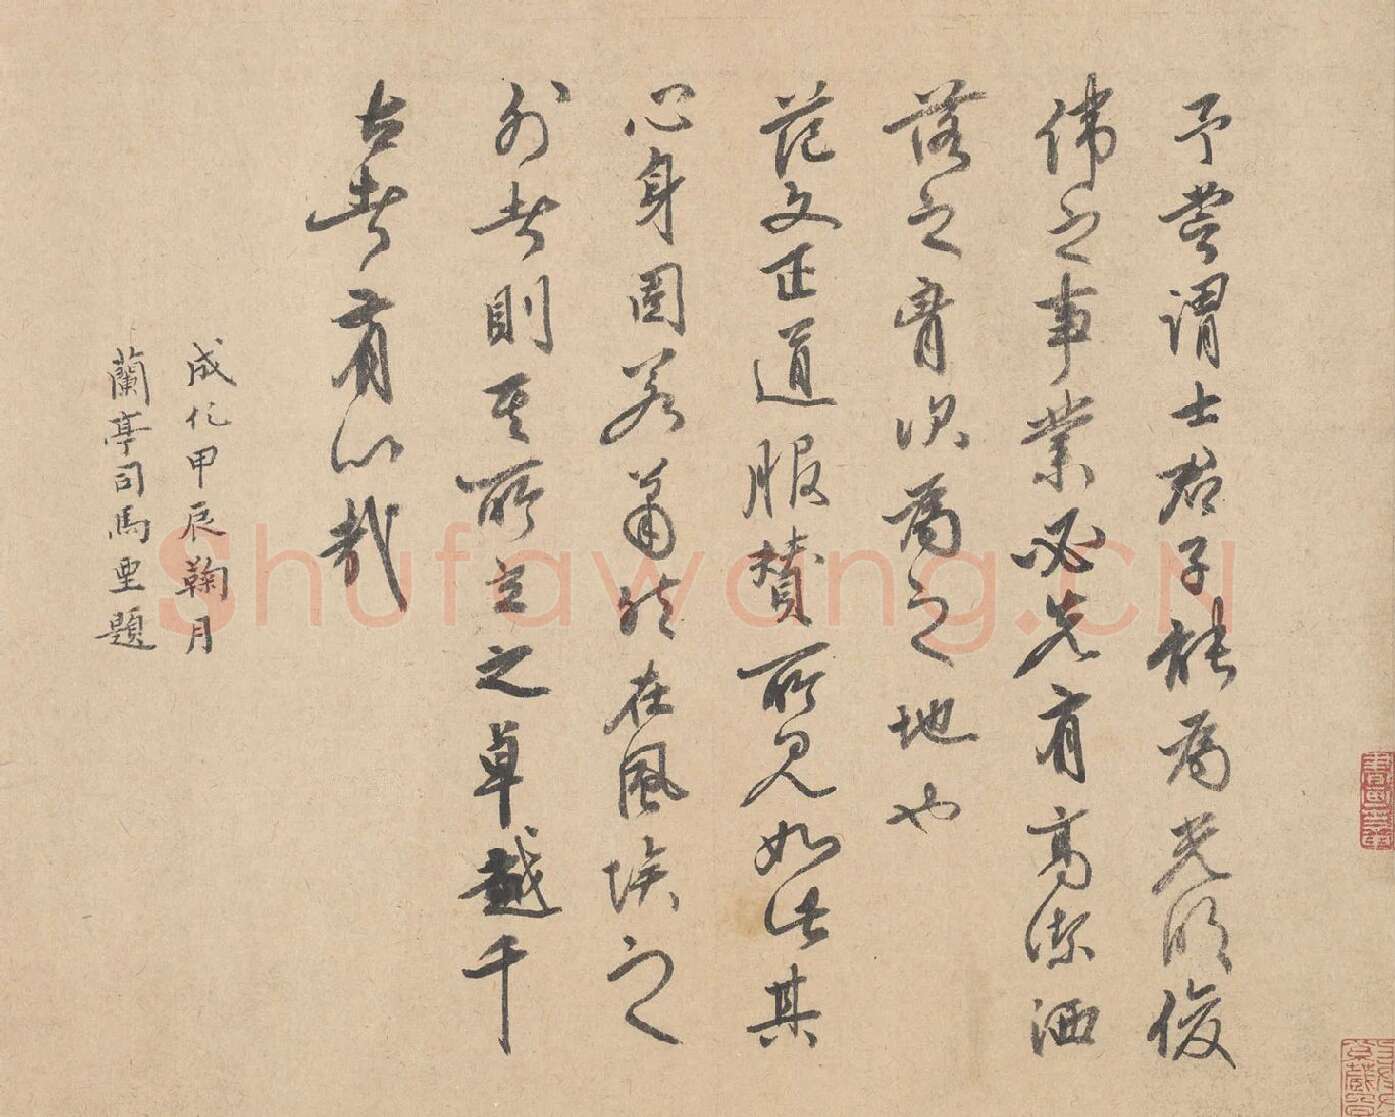 予嘗謂士君子能為光明俊
偉之事業必先有高潔洒
落之胷次為之地也
范文正道服贊所見如此其
心身固若蕭然在風埃之
外者則其所立之卓越千
古者有以哉
成化甲辰鞠月
蘭亭司馬垔題
Shufawang.CN